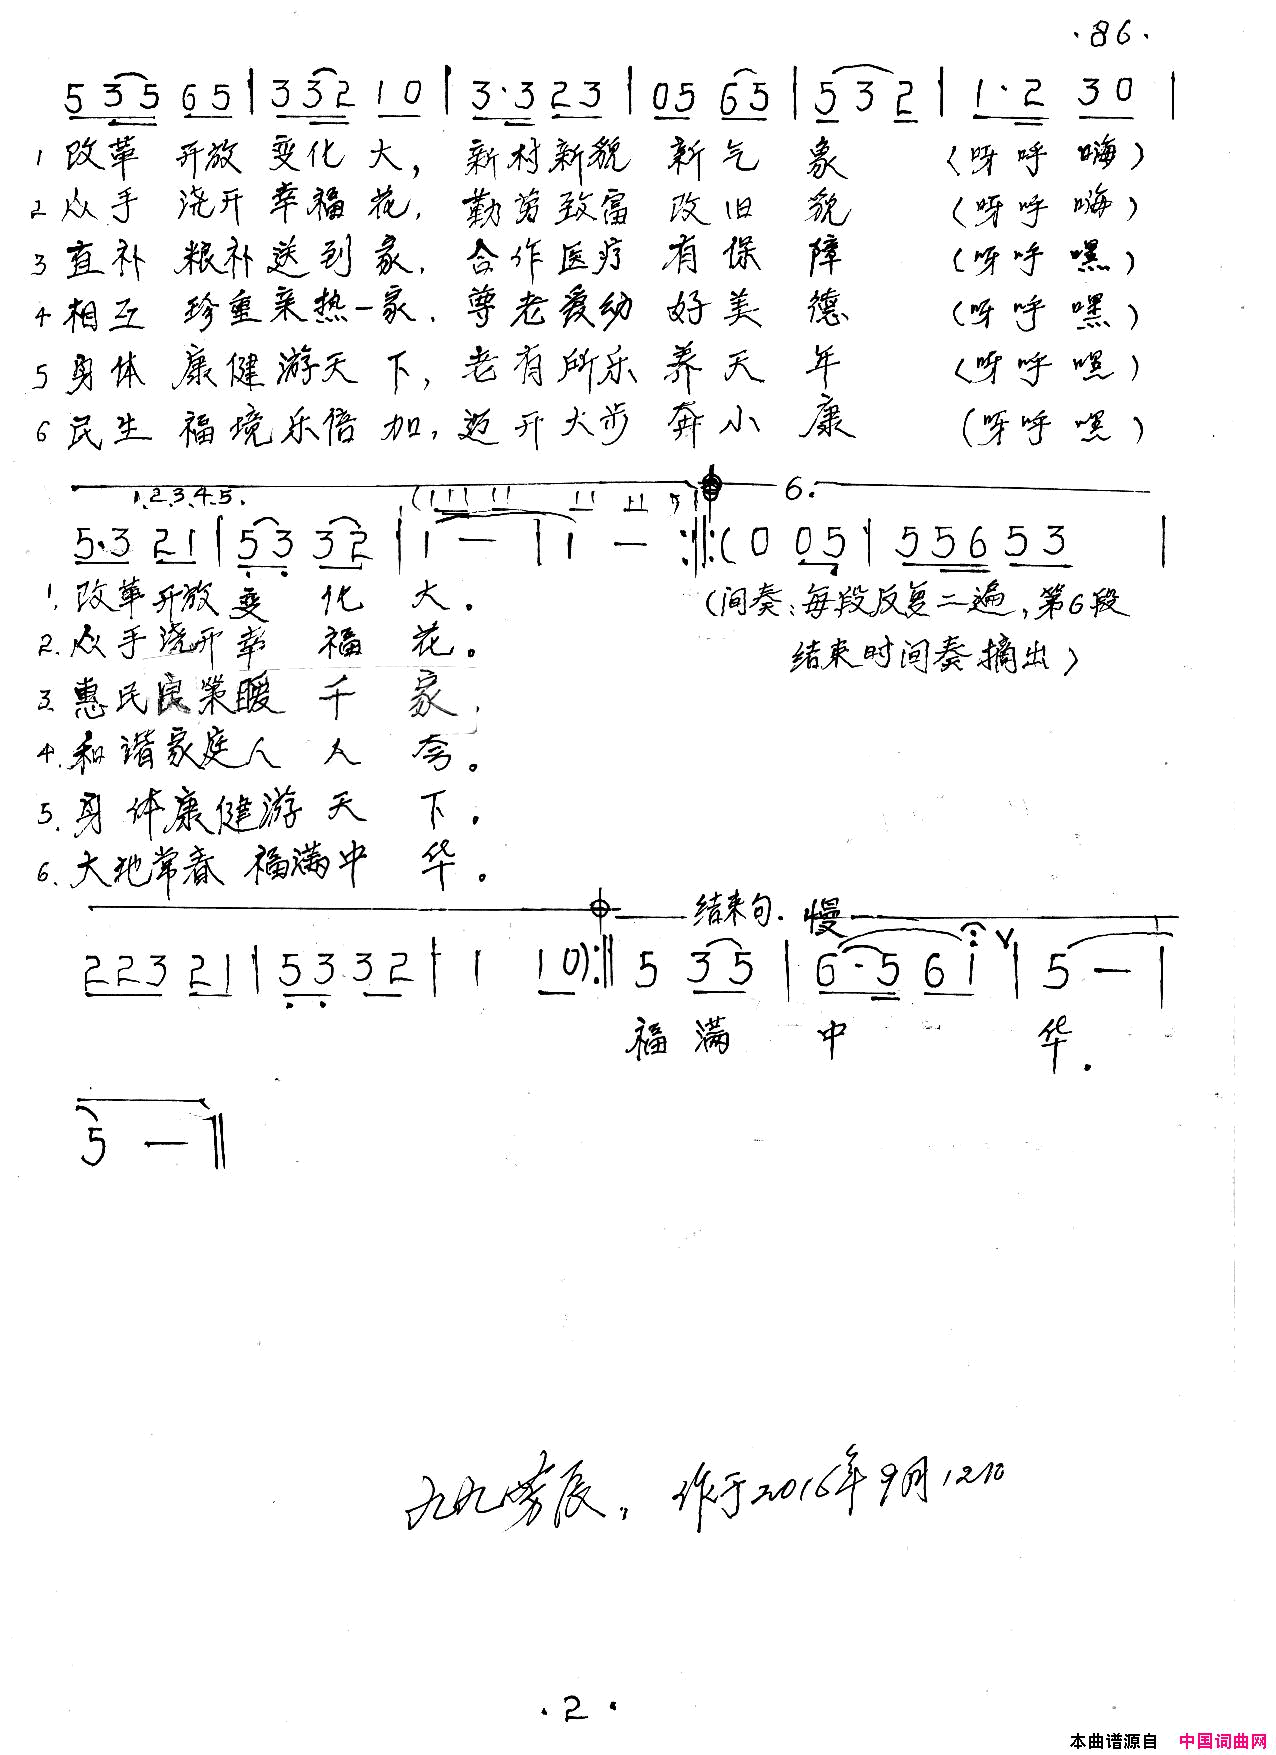 ·86·
5 3 5 6 5 | 3 3 2 1 0 | 3·3 2 3 | 0 5 6 5 | 5 3 2 | 1·2 3 0 |
1 改革 开放 变化大，新村新貌 新气象 （呀呼嗨）
2 众手 浇开幸福花，勤劳致富 改旧貌 （呀呼嗨）
3 直补 粮补送到家，合作医疗 有保障 （呀呼嘿）
4 相互 珍重亲热一家，尊老爱幼 好美德 （呀呼嘿）
5 身体 康健游天下，老有所乐 养天年 （呀呼嘿）
6 民生 福境乐倍加，迈开大步 奔小康 （呀呼嘿）
1.2.3.4.5. 6.
5·3 2 1 | 5 3 3 2 | 1 — | 1 — :||: (0 0 5 | 5 5 6 5 3 |
1. 改革开放变化大。 （间奏：每段反复二遍，第6段
2. 众手浇开幸福花。 结束时间奏摘出）
3. 惠民良策暖千家，
4. 和谐家庭人人夸。
5. 身体康健游天下。
6. 大地常春福满中华。
结束句. 慢
2 2 3 2 1 | 5 3 3 2 | 1 1 0) :|| 5 3 5 | 6·5 6 i | 5 — |
福满中华.
5 — ||
九九芳辰，作于2016年9月12日
·2·
本曲谱源自 中国词曲网